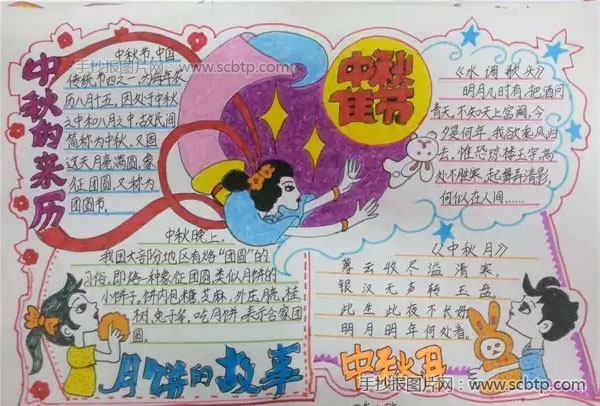 手抄报图片网
www.scbtp.com
中秋的来历
中秋节,中国
传统节四之一,为每年农
历八月十五,因处于中秋
之中和八月之中,故民间
简称为中秋,又因
这天月亮满圆,象
征团圆,又称为
团圆节。
中秋佳节
《水调歌头》
明月几时有,把酒问
青天,不知天上宫阙,今
夕是何年,我欲乘风归
去,惟恐琼楼玉宇,高
处不胜寒,起舞弄清影,
何似在人间……
中秋晚上,
我国大部分地区有烙“团圆”的
习俗,即烙一种象征团圆,类似月饼的
小饼子,饼内包糖,芝麻,外压月,桂
树,兔子等,吃月饼,表示合家团
圆。
月饼的故事
《中秋月》
暮云收尽溢清寒,
银汉无声转玉盘,
此生此夜不长好
明月明年何处看。
中秋
手抄报图片网:www.scbtp.com